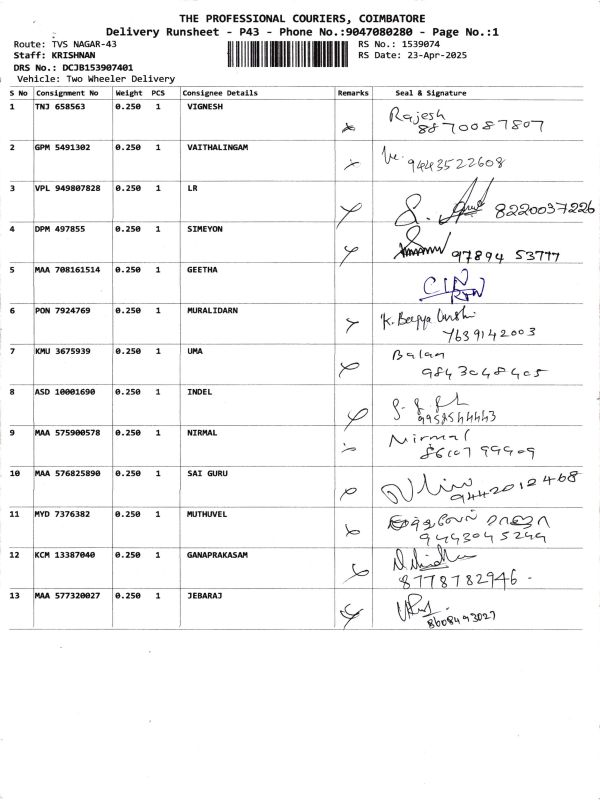 THE PROFESSIONAL COURIERS, COIMBATORE
Delivery Runsheet - P43 - Phone No.:9047080280 - Page No.:1
Route: TVS NAGAR-43
RS No.: 1539074
Staff: KRISHNAN
RS Date: 23-Apr-2025
DRS No.: DCJB153907401
Vehicle: Two Wheeler Delivery
S No Consignment No Weight PCS Consignee Details Remarks Seal & Signature
1 TNJ 658563 0.250 1 VIGNESH
Rajesh
8870087807
2 GPM 5491302 0.250 1 VAITHALINGAM
9443522608
3 VPL 949807828 0.250 1 LR
8220037226
4 DPM 497855 0.250 1 SIMEYON
97894 53777
5 MAA 708161514 0.250 1 GEETHA
6 PON 7924769 0.250 1 MURALIDARN
K.
7639142003
7 KMU 3675939 0.250 1 UMA
Balan
9843048405
8 ASD 10001690 0.250 1 INDEL
9 MAA 575900578 0.250 1 NIRMAL
Nirmal
10 MAA 576825890 0.250 1 SAI GURU
9442012468
11 MYD 7376382 0.250 1 MUTHUVEL
9443045249
12 KCM 13387040 0.250 1 GANAPRAKASAM
8778782946
13 MAA 577320027 0.250 1 JEBARAJ
8608493027